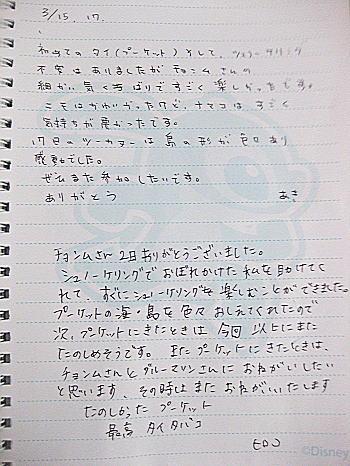 3/15. 17.
初めての タイ(プーケット)そして、シュノーケリング
不安は ありましたが チョンム さんの
細かい 気くばりで すごく 楽しかったです。
ニモは かわいかったけど、ナマコは すごく
気持ちが 悪かったです。
17日の ツーカヌーは 島の 形が 色々あり
感動でした。
ぜひまた 参加 したいです。
ありがとう あき
チョンムさん 2日 ありがとうございました。
シュノーケリングで おぼれかけた 私を 助けてく
れて、すぐに シュノーケリングを 楽しむことが できました。
プーケットの 海・島を 色々 おしえてくれたので
次、プーケットに きたときは 今回 以上に また
たのしめそうです。 また プーケットに きたときは、
チョンムさんと グルーマンさんに おねがいしたい
と思います。 その時は また おねがいします
たのしかった プーケット
最高 タイタバコ
©Disney